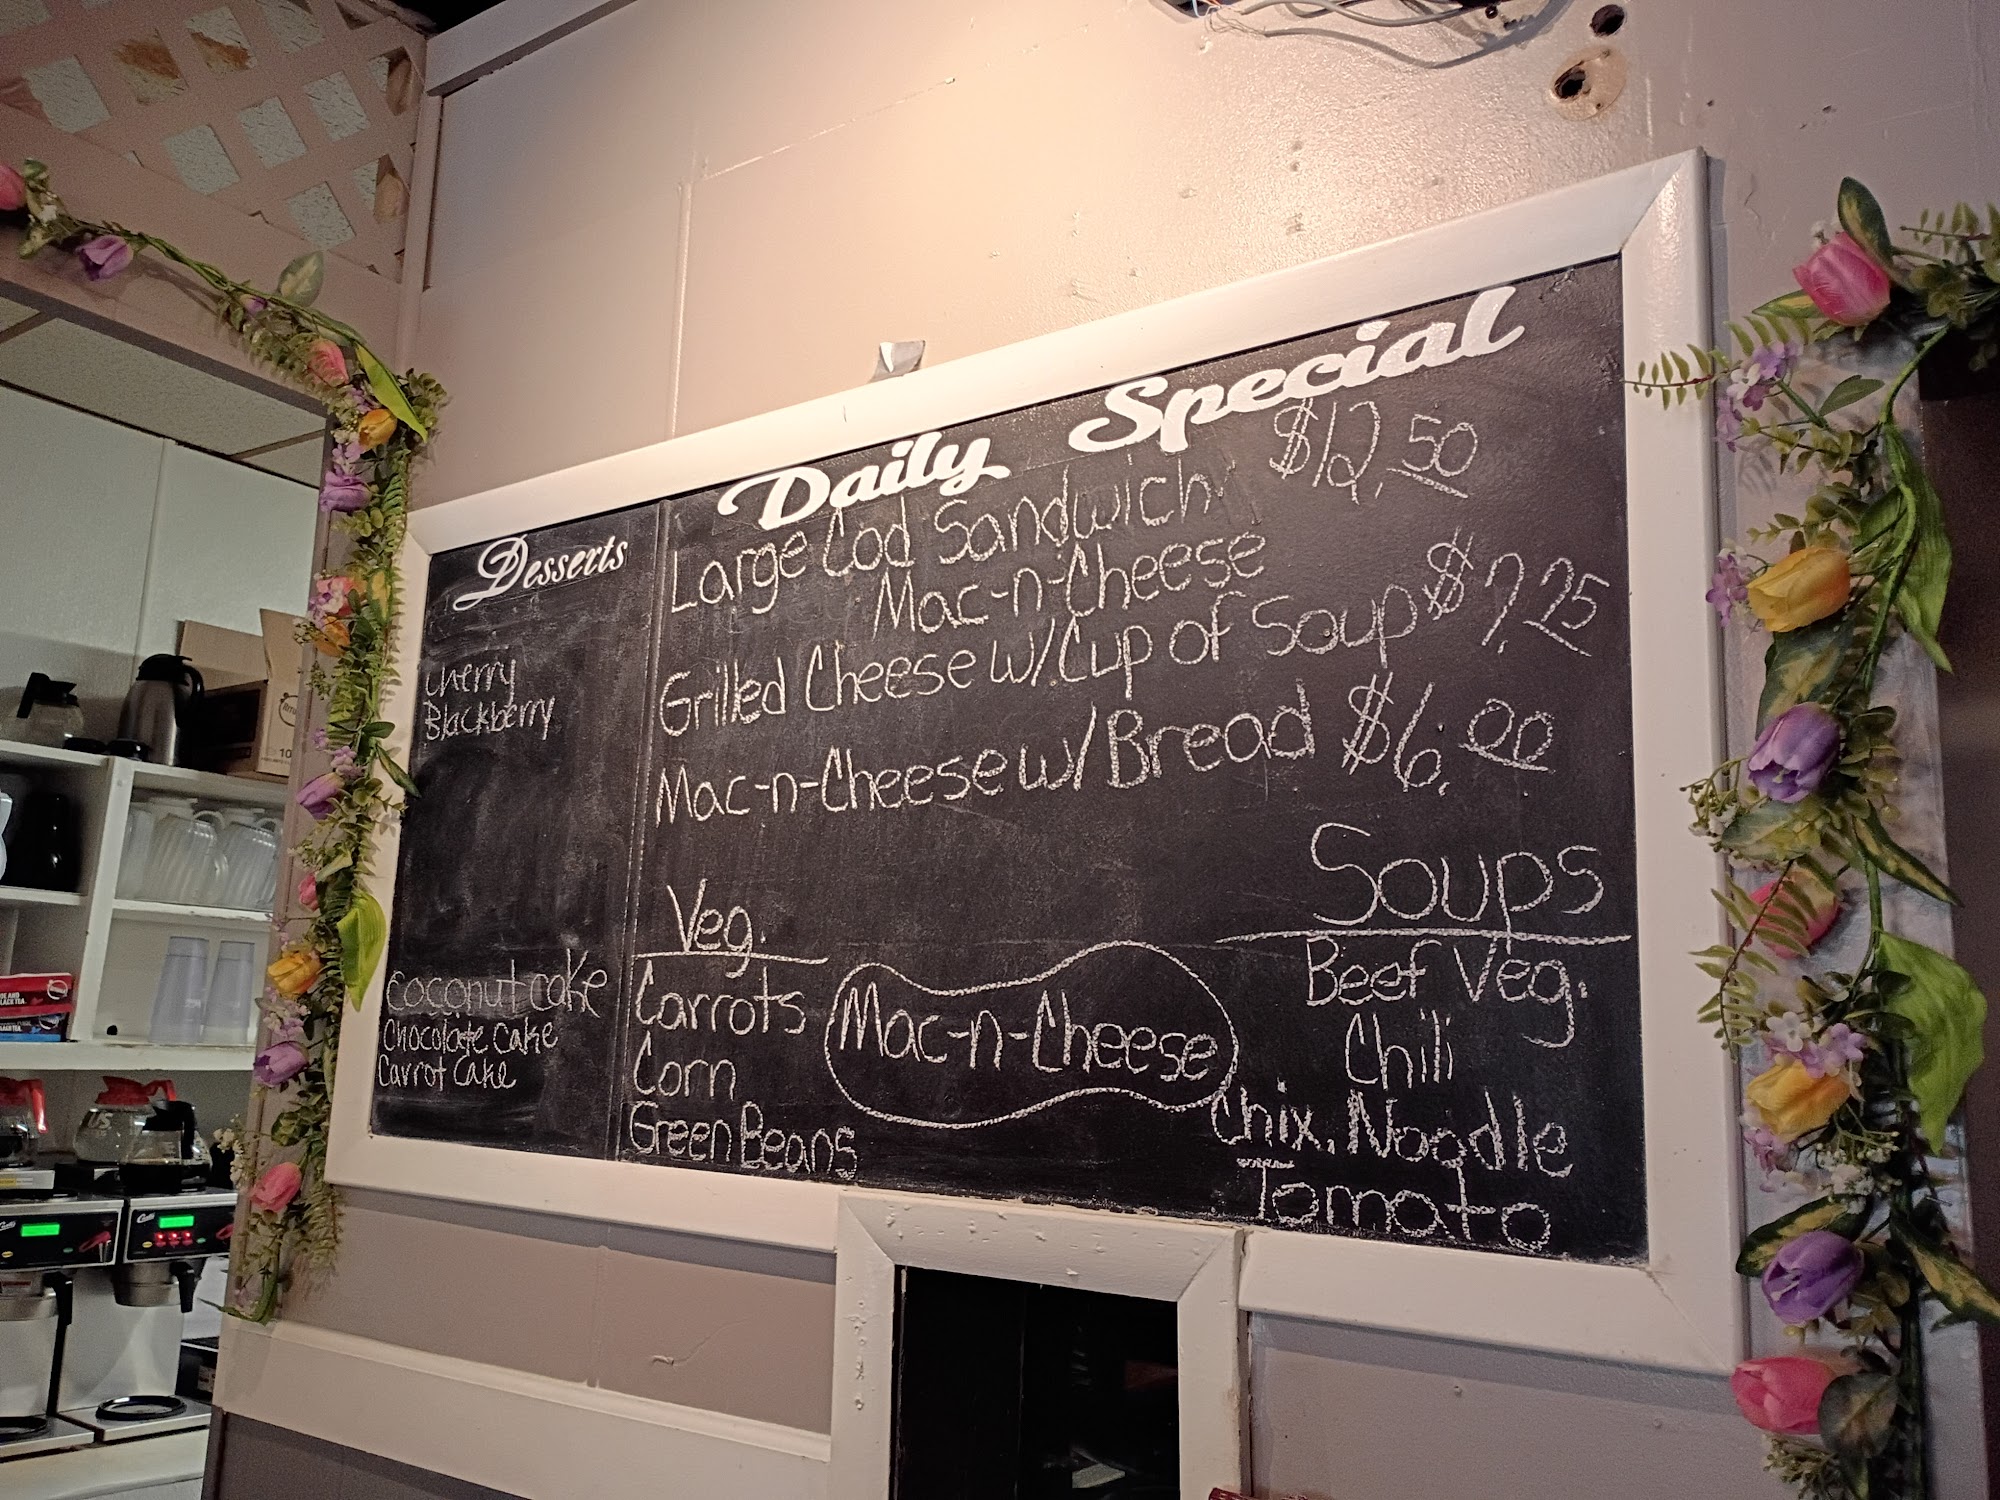 Daily Special
Large Cod Sandwich $12.50
Mac-n-Cheese
Grilled Cheese w/Cup of Soup $7.25
Mac-n-Cheese w/Bread $6.00
Desserts
Cherry
Blackberry
Coconut cake
Chocolate cake
Carrot cake
Veg.
Carrots
Corn
Green Beans
Mac-n-Cheese
Soups
Beef Veg.
Chili
Chix. Noodle
Tomato